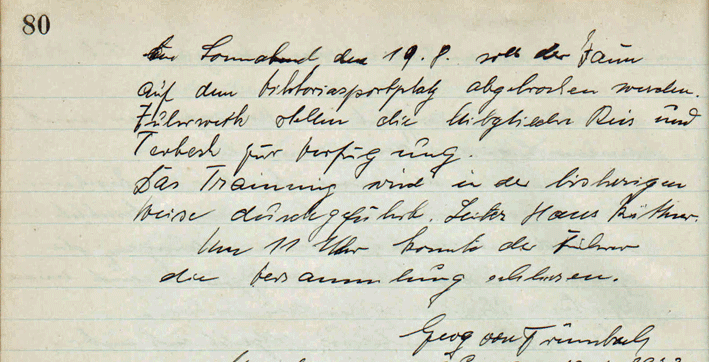 80
Am Sonnabend den 19. 8. soll der Zaun
auf dem Viktoriasportplatz abgebrochen werden.
Fuhrwerk stellen die Mitglieder Reis und
Terbeck zur Verfügung.
Das Training wird in der bisherigen
Weise durchgeführt. Leiter Hans Büttner.
Um 11 Uhr konnte der Führer
die Versammlung schliesen.
Georg von